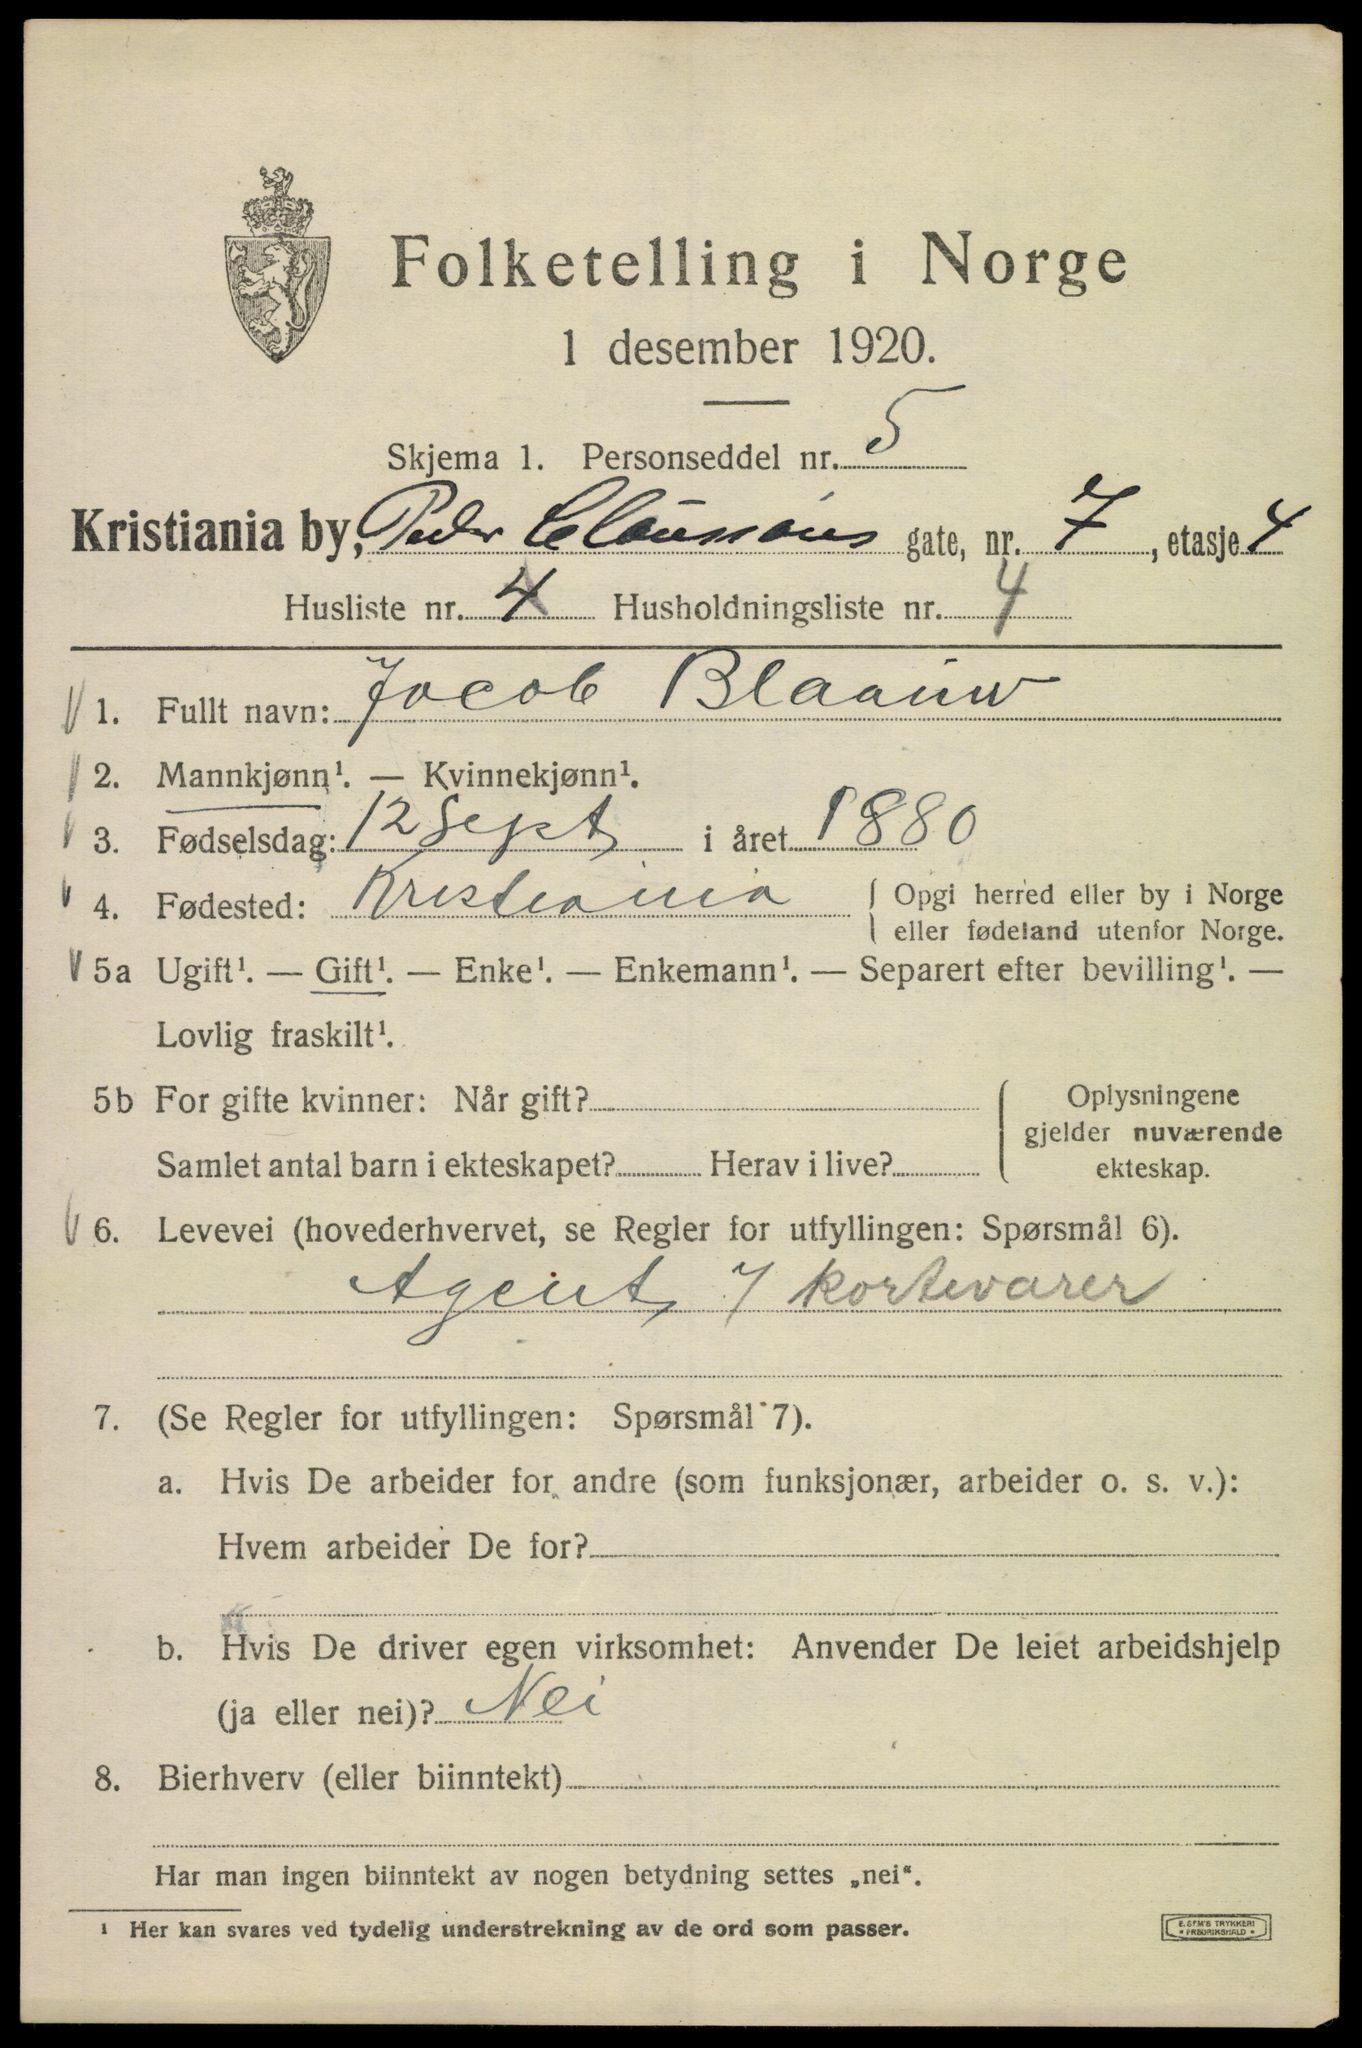 Folketelling i Norge
1 desember 1920.
Skjema 1. Personseddel nr. 5
Kristiania by, Peder Claussøns gate, nr. 7, etasje 4
Husliste nr. 4 Husholdningsliste nr. 4
1. Fullt navn: Jacob Blaauw
2. Mannkjønn¹. — Kvinnekjønn¹.
3. Fødselsdag: 12 Sept i året 1880
4. Fødested: Kristiania { Opgi herred eller by i Norge
eller fødeland utenfor Norge.
5a Ugift¹. — Gift¹. — Enke¹. — Enkemann¹. — Separert efter bevilling¹. —
Lovlig fraskilt¹.
5b For gifte kvinner: Når gift? { Oplysningene
gjelder nuværende
Samlet antal barn i ekteskapet? Herav i live? ekteskap.
6. Levevei (hovederhvervet, se Regler for utfyllingen: Spørsmål 6).
Agent i kortevarer
7. (Se Regler for utfyllingen: Spørsmål 7).
a. Hvis De arbeider for andre (som funksjonær, arbeider o. s. v.):
Hvem arbeider De for?
b. Hvis De driver egen virksomhet: Anvender De leiet arbeidshjelp
(ja eller nei)? Nei
8. Bierhverv (eller biinntekt)
Har man ingen biinntekt av nogen betydning settes „nei“.
¹ Her kan svares ved tydelig understrekning av de ord som passer.
E. SEM'S TRYKKERI
• FREDRIKSHALD •